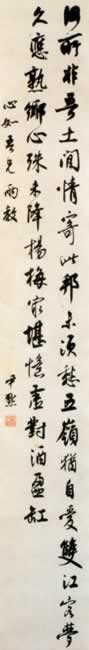 何所非吾土閒情寄此邦未須愁五嶺猶自愛雙江客夢
久應熟鄉心殊未降楊梅最堪憶虛對酒盈缸
心如吾兄兩教
尹默